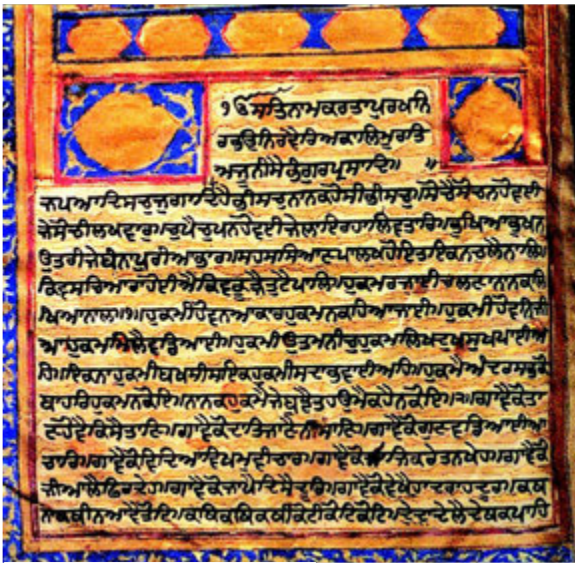 ੴਸਤਿਨਾਮਕਰਤਾਪੁਰਖਨਿ
ਰਭਉਨਿਰਵੈਰਿਅਕਾਲਿਮੂਰਤਿ
ਅਜੂਨੀਸੈਭੰਗੁਰਪ੍ਰਸਾਦਿ॥ ॥
ਜਪਆਦਿਸਚੁਜੁਗਾਦਿਹੈਭੀਸਚਨਾਨਕਹੋਸੀਭੀਸਚੁ॥ਸੋਚੈਸੋਚਨਹੋਵਈ
ਜੇਸੋਚੀਲਖਵਾਰ॥ਚੁਪੈਚੁਪਨਹੋਵਈਜੇਲਾਇਰਹਾਲਿਵਤਾਰਿ॥ਭੁਖਿਆਭੁਖਨ
ਉਤਰੀਜੇਬੰਨਾਪੁਰੀਆਭਾਰ॥ਸਹਸਸਿਆਣਪਾਲਖਹੋਇਤਇਕਨਚਲੈਨਾਲਿ॥
ਕਿਵਸਚਿਆਰਾਹੋਈਐਕਿਵਕੂੜੈਤੁਟੈਪਾਲਿ॥ਹੁਕਮਰਜਾਈਚਲਣਾਨਾਨਕਲਿ
ਖਿਆਨਾਲ॥੧॥ਹੁਕਮੀਹੋਵਨਆਕਾਰਹੁਕਮਨਕਹਿਆਜਾਈ॥ਹੁਕਮੀਹੋਵਨਿਜੀ
ਆਹੁਕਮਮਿਲੈਵਡਿਆਈ॥ਹੁਕਮੀਉਤਮਨੀਚੁਹੁਕਮਲਿਖਦੁਖਸੁਖਪਾਈਅ
ਹਿ॥ਇਕਨਾਹੁਕਮੀਬਖਸੀਸਇਕਹੁਕਮੀਸਦਾਭਵਾਈਅਹਿ॥ਹੁਕਮੈਅੰਦਰਸਭਕੋ
ਬਾਹਰਿਹੁਕਮਨਕੋਇ॥ਨਾਨਕਹੁਕਮੈਜੇਬੁਝੈਤਹਉਮੈਕਹੈਨਕੋਇ॥੨॥ਗਾਵੈਕੋਤਾ
ਣਹੋਵੈਕਿਸੈਤਾਣਿ॥ਗਾਵੈਕੋਦਾਤਿਜਾਣੈਨੀਸਾਣਿ॥ਗਾਵੈਕੋਗੁਣਵਡਿਆਈਆ
ਚਾਰ॥ਗਾਵੈਕੋਵਿਦਿਆਵਿਖਮੁਵੀਚਾਰ॥ਗਾਵੈਕੋਸਾਜਿਕਰੇਤਨਖੇਹ॥ਗਾਵੈਕੋ
ਜੀਆਲੈਫਿਰਿਦੇਹ॥ਗਾਵੈਕੋਜਾਪੈਦਿਸੈਦੂਰਿ॥ਗਾਵੈਕੋਵੇਖੈਹਾਦਰਾਹਦੂਰ॥ਕਥ
ਨਾਕਥੀਨਆਵੈਤੋਟਿ॥ਕਥਿਕਥਿਕਥੀਕੋਟੀਕੋਟਿਕੋਟਿ॥ਦੇਦਾਦੇਲੈਦੇਥਕਪਾਹਿ